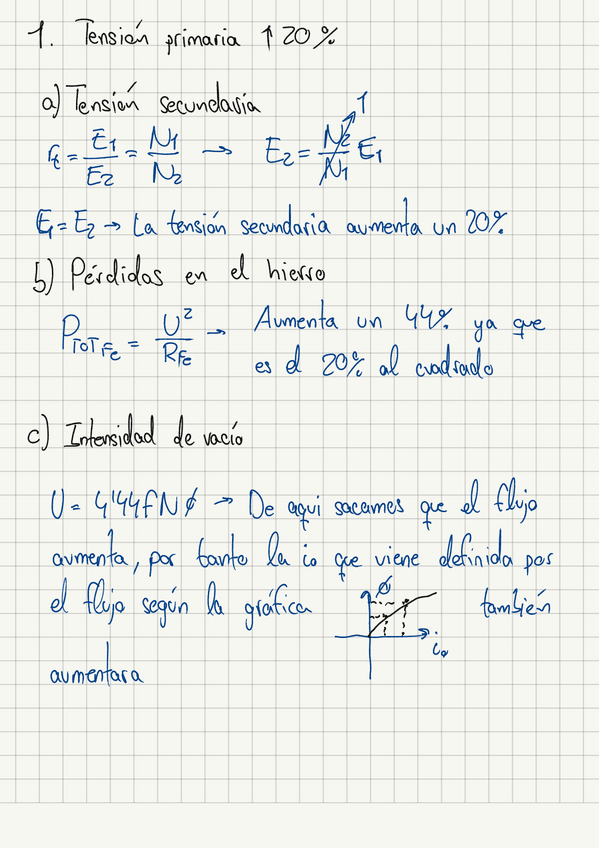 1. Tensión primaria ↑ 20%
a) Tensión secundaria
rt = E1/E2 = N1/N2 → E2 = N2/N1 E1 1
E1 = E2 → La tensión secundaria aumenta un 20%
b) Pérdidas en el hierro
PTOT Fe = U²/RFe → Aumenta un 44% ya que
es el 20% al cuadrado
c) Intensidad de vacío
U = 4'44fNϕ → De aqui sacamos que el flujo
aumenta, por tanto la io que viene definida por
el flujo según la gráfica ϕ io también
aumentara